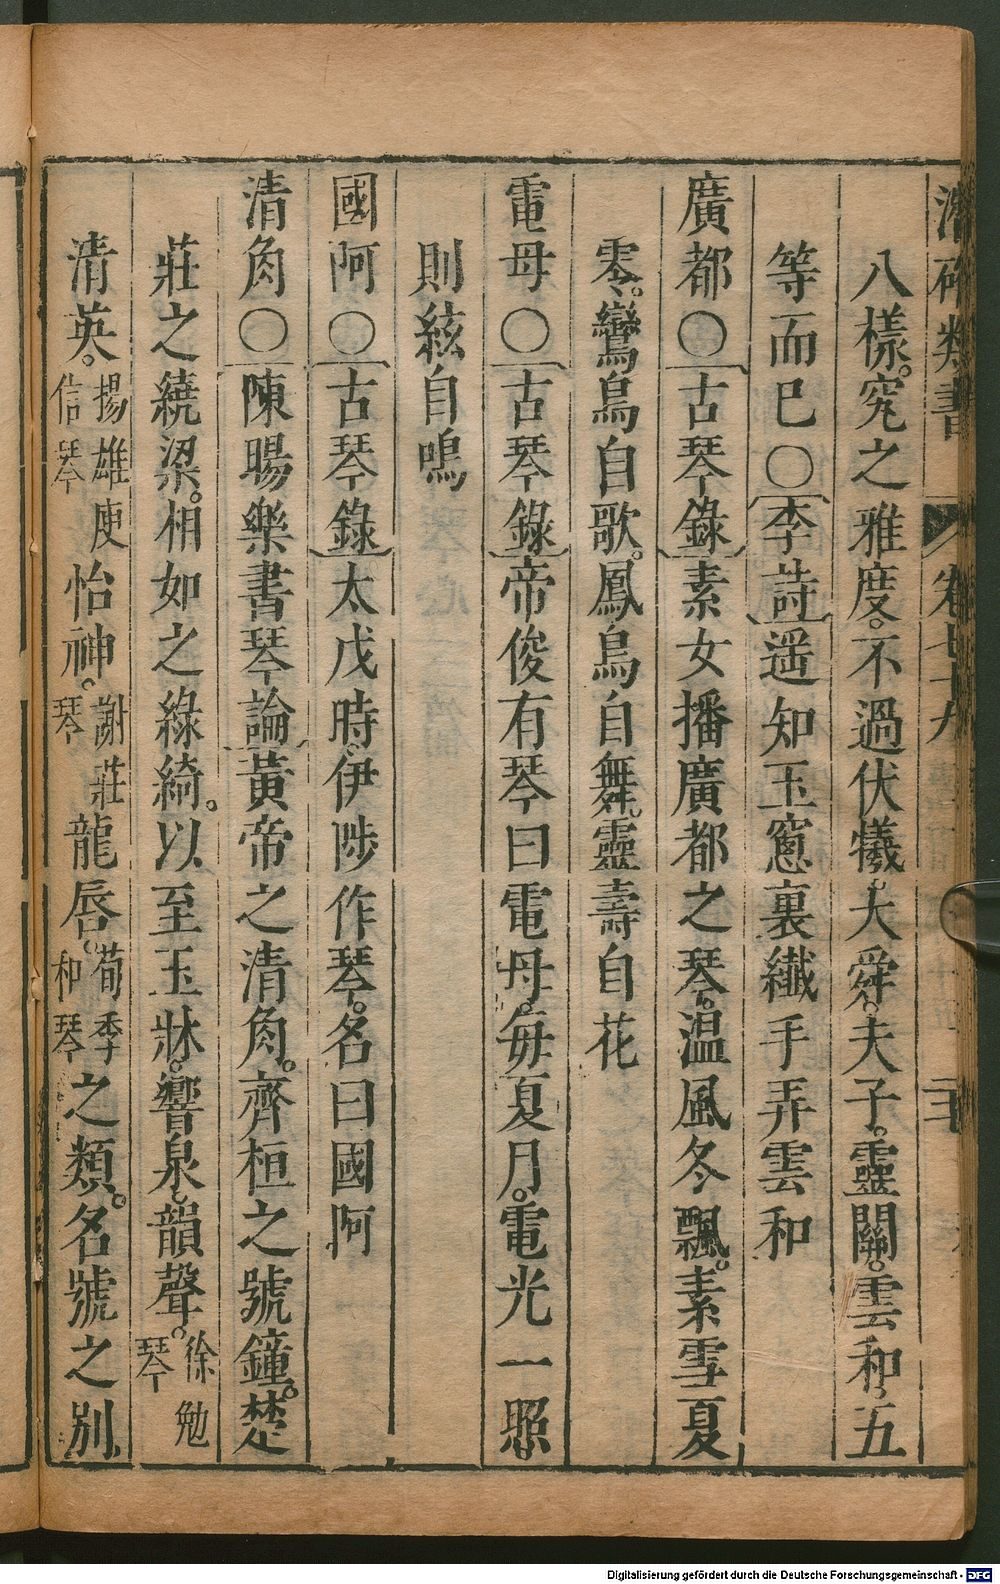 潛確類書 卷七十九
八樣。究之雅度。不過伏犧。大舜。夫子。靈關。雲和。五
等而已○李詩遥知玉窻裏纖手弄雲和
廣都○古琴錄素女播廣都之琴。温風冬飄。素雪夏
零。鸞鳥自歌。鳳鳥自舞。靈壽自花
電母○古琴錄帝俊有琴曰電母。每夏月。電光一照。
則絃自鳴
國阿○古琴錄太戊時。伊陟作琴。名曰國阿
清角○陳暘樂書琴論黃帝之清角。齊桓之號鐘。楚
莊之繞梁。相如之綠綺。以至玉牀。響泉。韻聲。徐勉琴
清英。揚雄琴庾信怡神。謝莊琴龍唇。荀季和琴之類。名號之別。
Digitalisierung gefördert durch die Deutsche Forschungsgemeinschaft - DFG